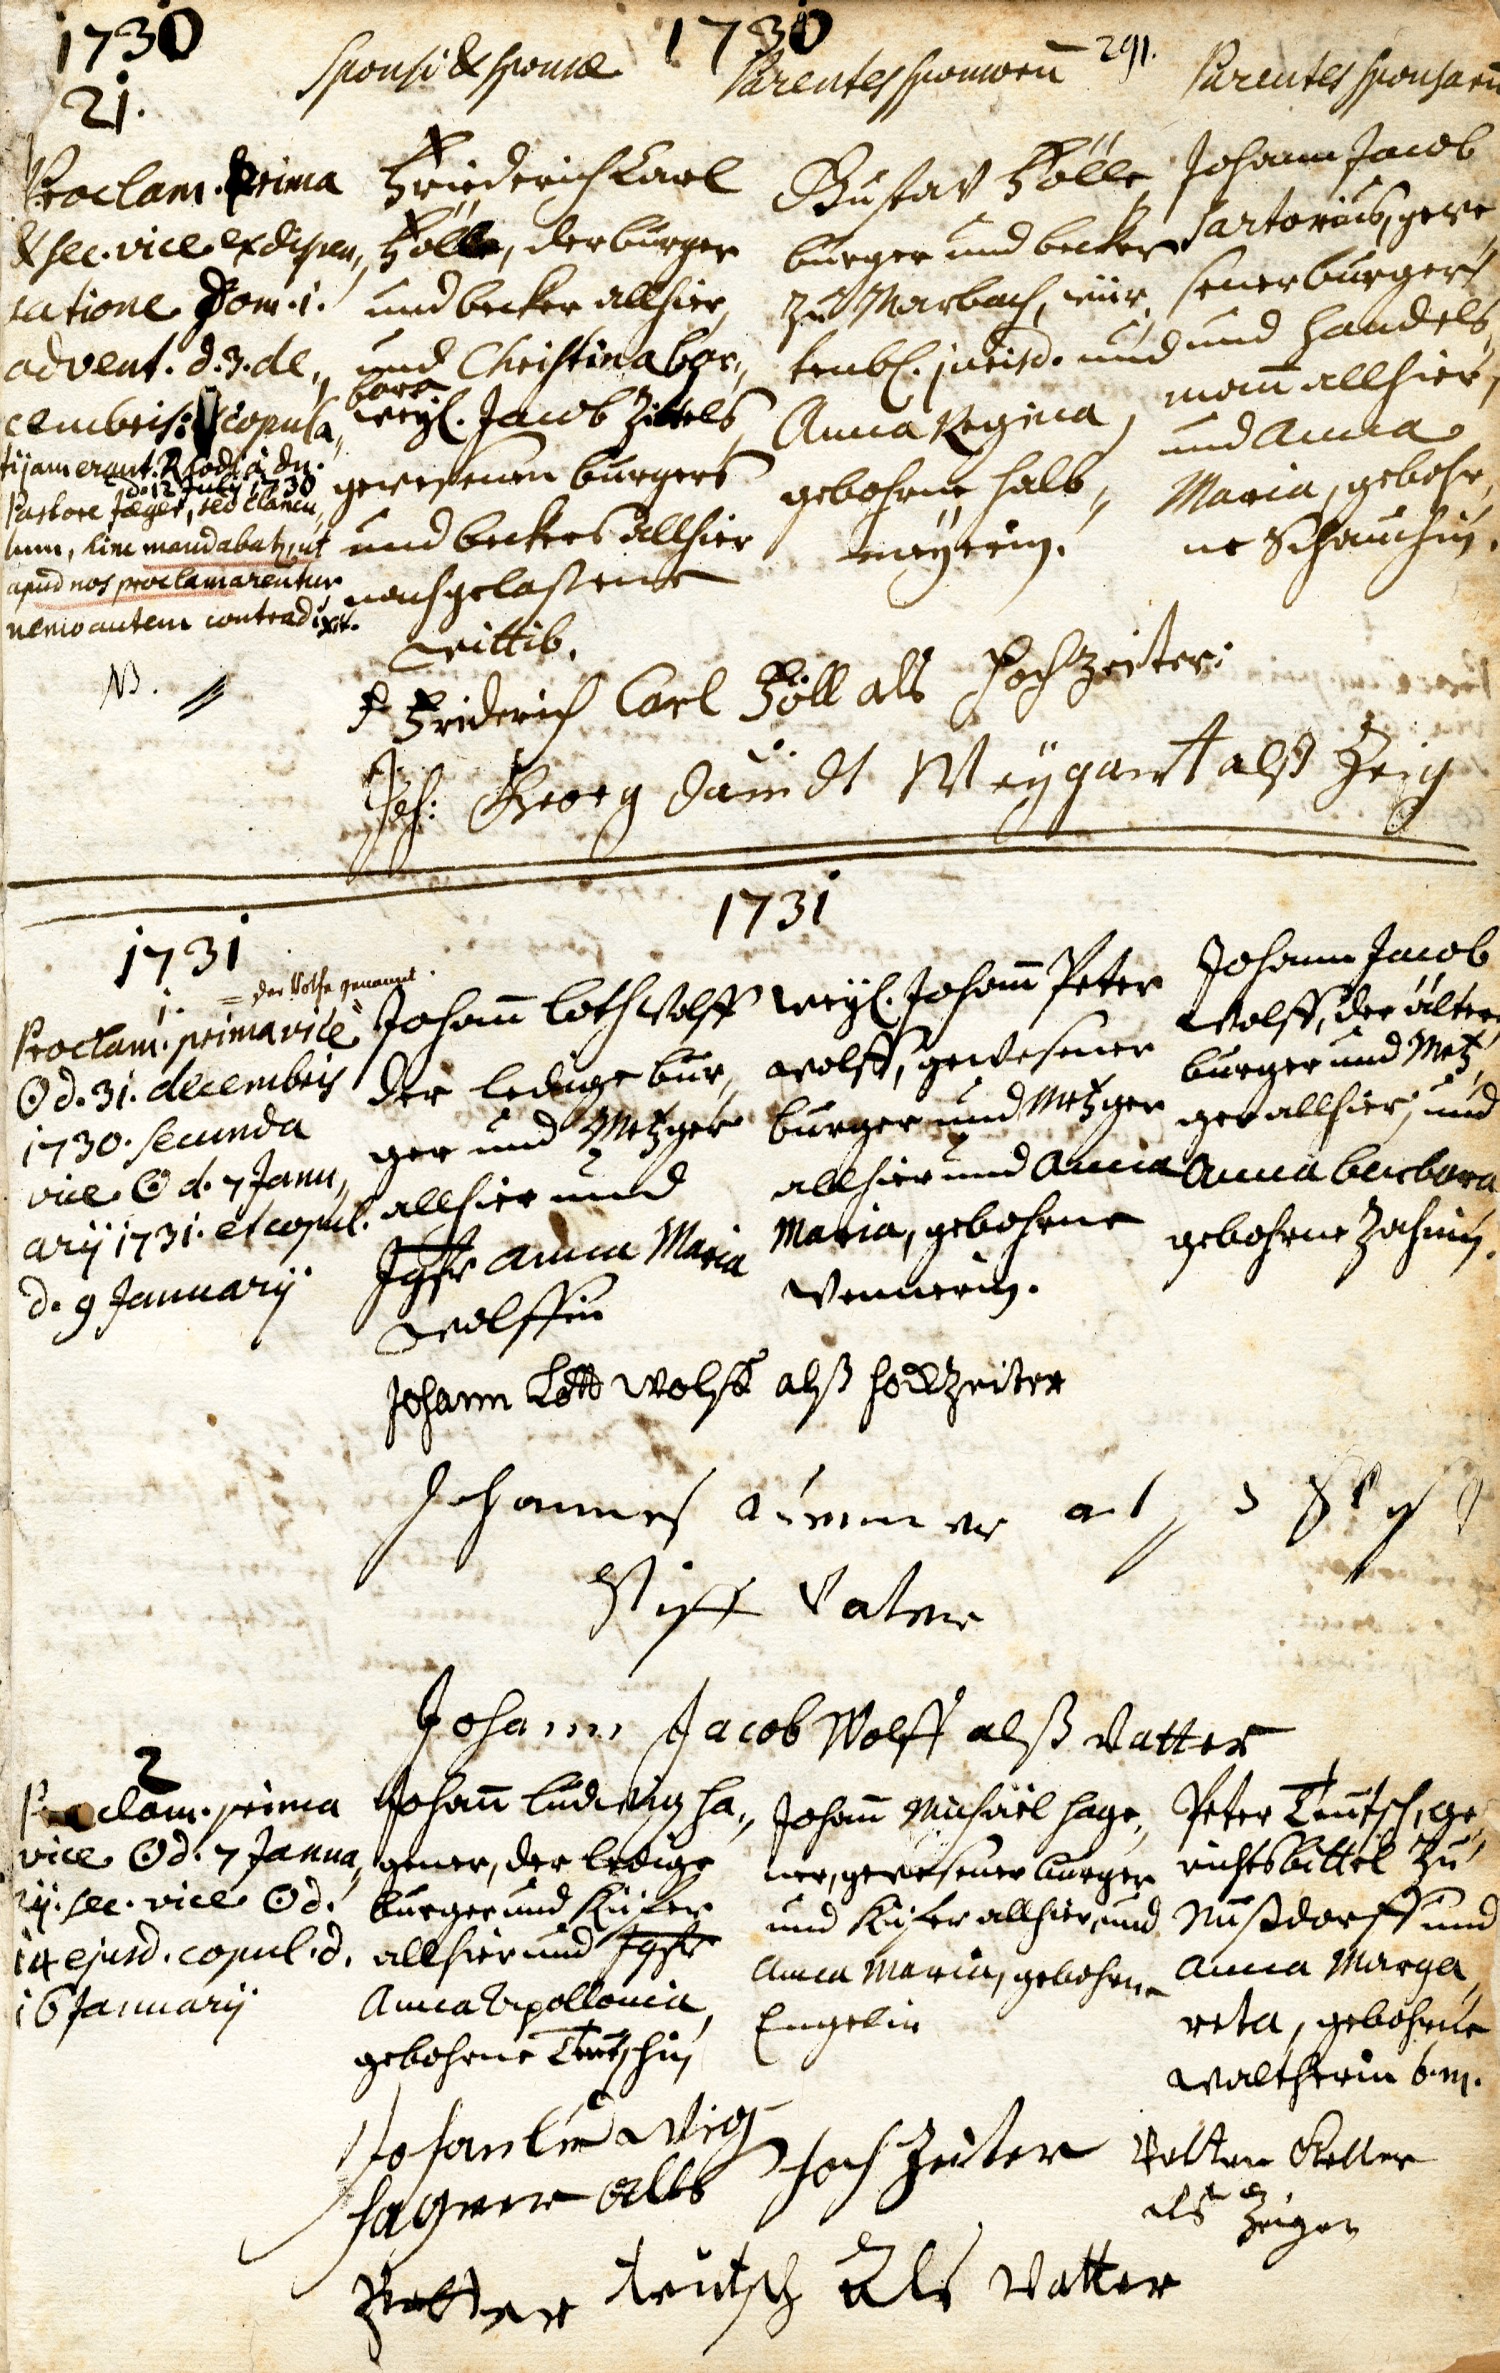 1730
1730
291.
Sponsi & sponsae
Parentes sponsorū
Parentes sponsarū
21.
Proclam. prima
& sec. vice ex dispen,,
satione Dom. 1.
advent. d. 3. de,,
cembris: copula,,
ti jam erant. Rhodij à dn.
d. 12 July 1730
Pastore Jæger, sed clancu,,
lum, hinc mandabatz, ut
apud nos proclamarentur
nemo autem contradixit.
NB.
Friederich Carl
Fölle, der burger
und becker allhier,
und Christina bar,,
bara
weyl. Jacob Zittels,
gewesenen burgers
und beckers allhier
nachgelaßene
wittib.
Gustav Fölle,
burger und becker
zu Marbach, wür,
tenbl. jurisd. und
Anna Regina,
gebohrne Halb,,
meyerin.
Johann Jacob
Sartorius, gewe,
sener burger
und handels,
mann allhier,
und Anna
Maria, gebohr,
ne Schauchin.
Friderich Carl Föll als Hochzeiter:
Joh: Georg daūidt Weygant alß Zeig
1731
1731
1.
der Wolfe genannt.
Proclam. prima vice
☉ d. 31. decembris
1730. secunda
vice ☉ d. 7 Janu,,
arij 1731. et copul.
d. 9 Januarij
Johann Loth Wolff
der ledige bur,
ger und Metzger
allhier und
Jgfr Anna Maria
Wolffin
weyl. Johann Peter
Wolff, gewesener
burger und Metzger
allhier und Anna
Maria, gebohrne
Wennerin.
Johann Jacob
Wolff, der ältere
burger und Metz,
ger allhier, und
Anna barbara
gebohrne Zahnin.
Johann Lott Wolff alß hochzeiter
Johannes
Stiff Vatter
Johann Jacob Wolff alß Vatter
2
Proclam. prima
vice ☉ d. 7 Janua,,
rij. sec. vice ☉ d.
14 ejusd. copul. d.
16 Januarij
Johann Ludwig Ha,,
gener, der ledige
burger und Küfer
allhier und Jgfr
Anna Apollonia,
gebohrne Teutschin
Johann Michäel Hage,,
ner, gewesener burger
und Küfer allhier, und
Anna Maria, gebohrne
Engelin
Peter Teutsch, ge,
richtsbittel zu
Nußdorff und
Anna Marga,
reta, gebohrne
Waltherin b. m.
Johan Ludwig
Hagner alls Hochzeiter
Velten Keller
als Zeigen
Petter teutsch Als Vatter